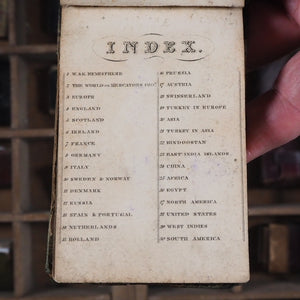 INDEX.
1 W. & E. HEMISPHERE
2 THE WORLD on MERCATORS PROJ
3 EUROPE
4 ENGLAND
5 SCOTLAND
6 IRELAND
7 FRANCE
8 GERMANY
9 ITALY
10 SWEDEN & NORWAY
11 DENMARK
12 RUSSIA
13 SPAIN & PORTUGAL
14 NETHERLANDS
15 HOLLAND
16 PRUSSIA
17 AUSTRIA
18 SWISSERLAND
19 TURKEY IN EUROPE
20 ASIA
21 TURKEY IN ASIA
22 HINDOOSTAN
23 EAST INDIA ISLANDS
24 CHINA
25 AFRICA
26 EGYPT
27 NORTH AMERICA
28 UNITED STATES
29 WEST INDIES
30 SOUTH AMERICA